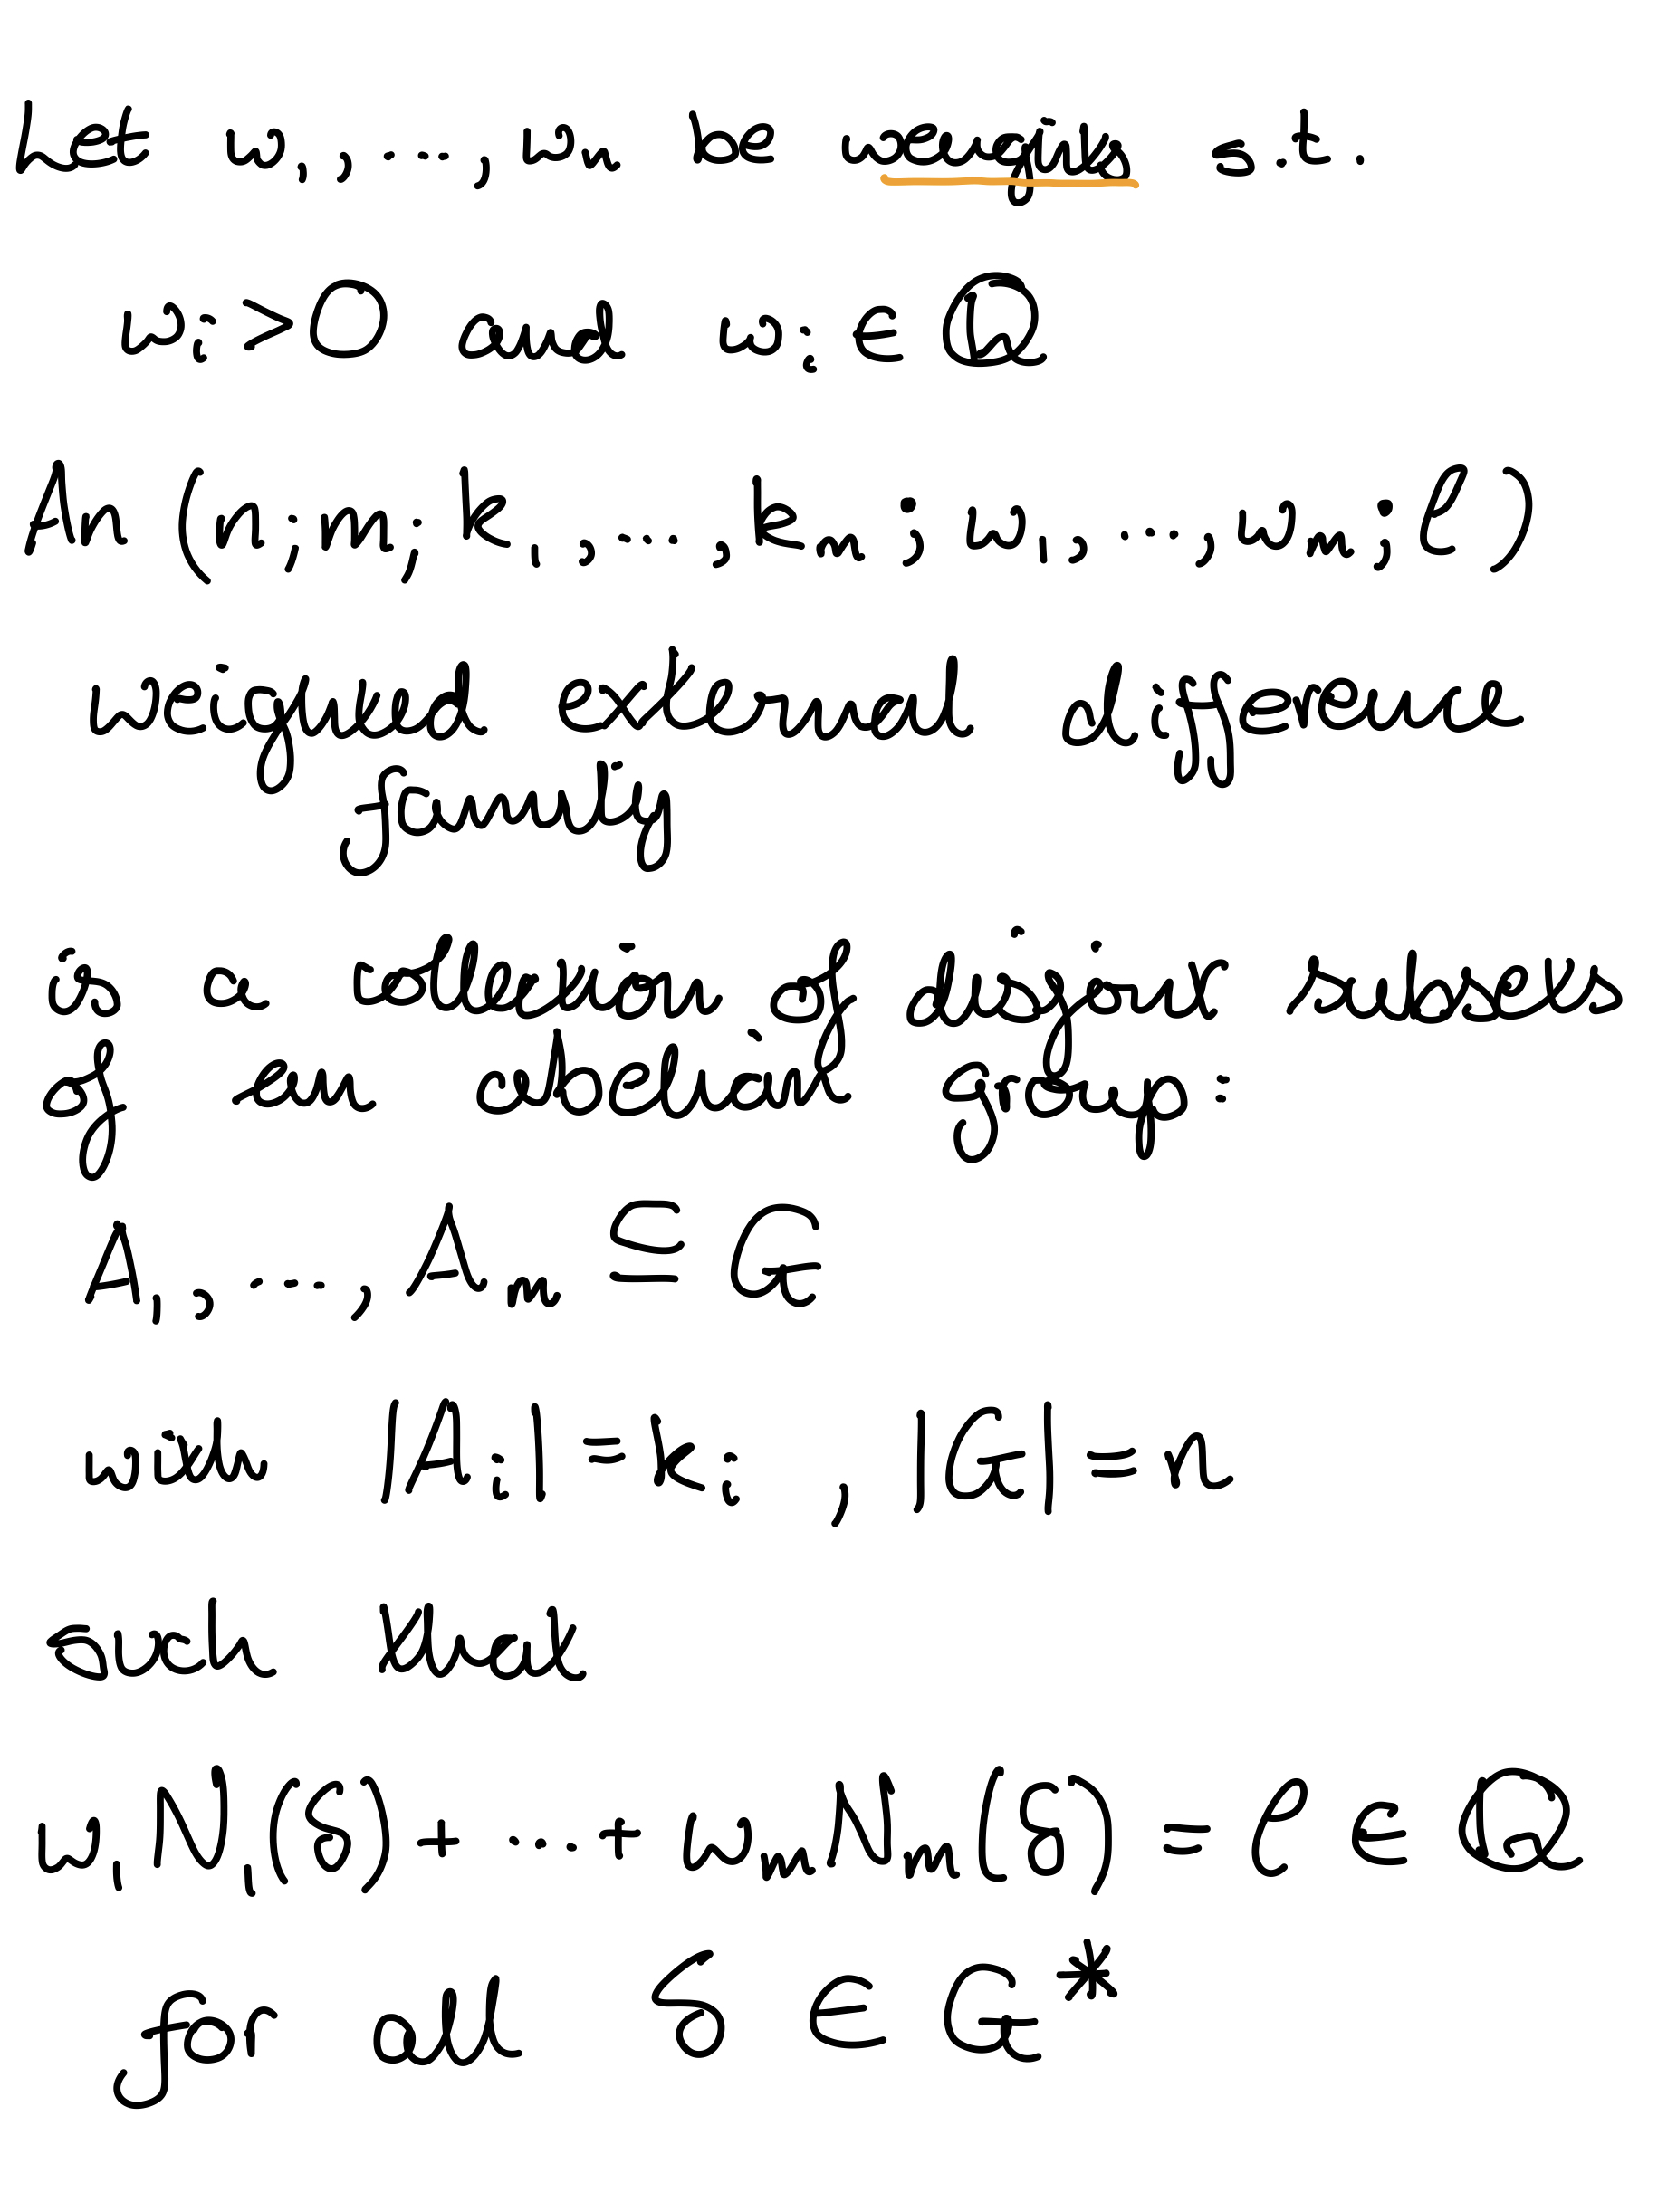 Let w₁, ..., wₘ be weights s.t.
wᵢ > 0 and wᵢ ∈ ℚ
An (n; m; k₁, ..., kₘ; w₁, ..., wₘ; ℓ)
weighted external difference
family
is a collection of disjoint subsets
of an abelian group:
A₁, ..., Aₘ ⊆ G
with |Aᵢ| = kᵢ , |G| = n
such that
w₁N₁(δ) + ... + wₘNₘ(δ) = ℓ ∈ ℚ
for all δ ∈ G*